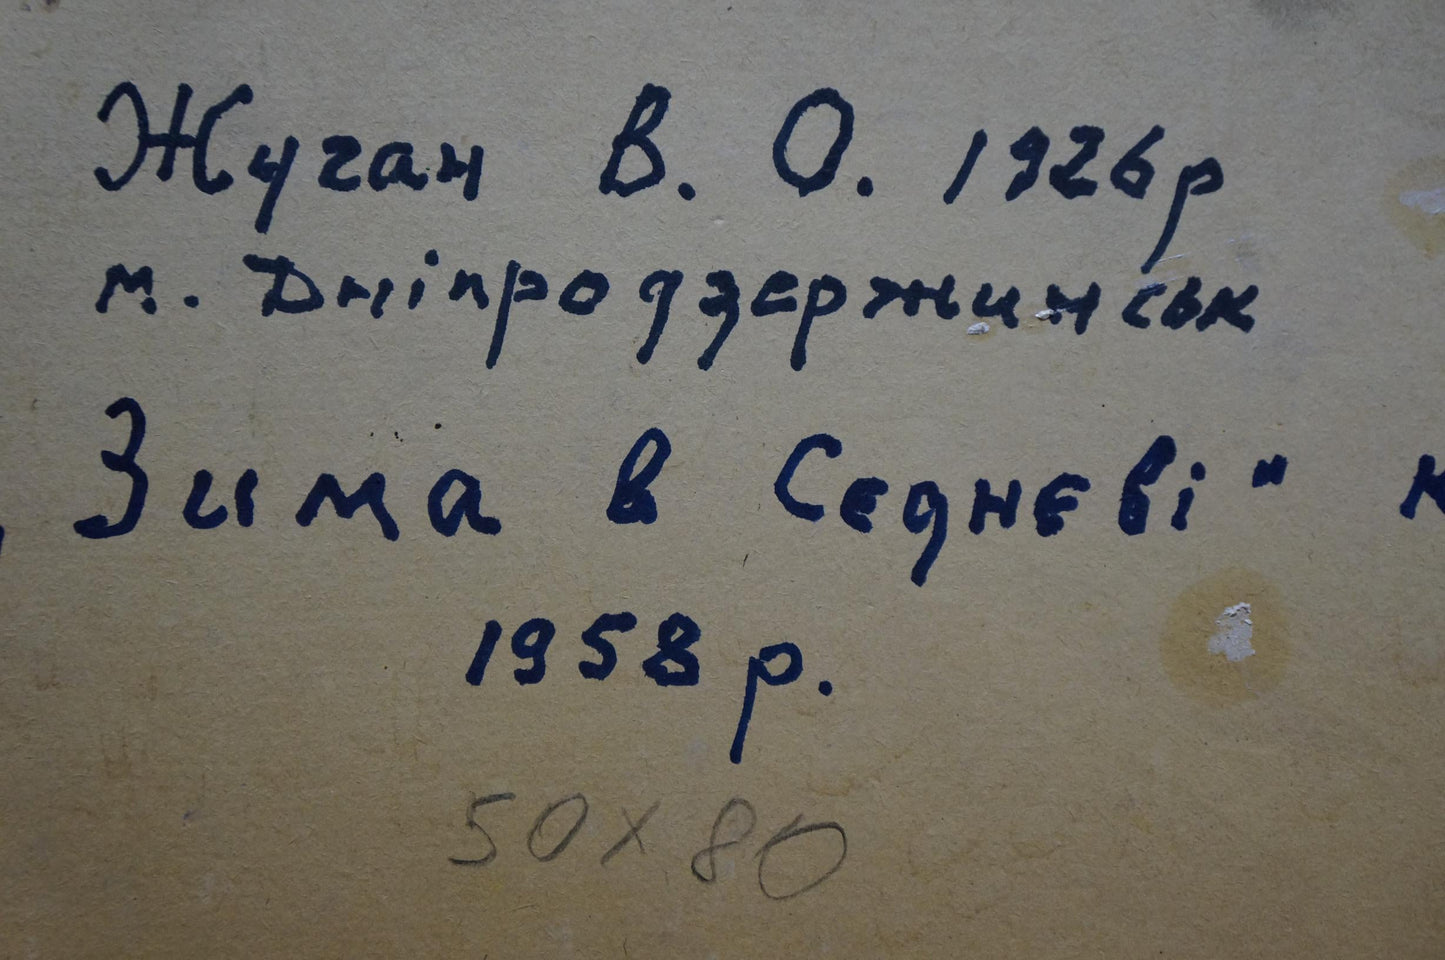 Жуган В. О. 1926р
м. Дніпродзержинськ
„Зима в Седневі"
1958 р.
50 х 80